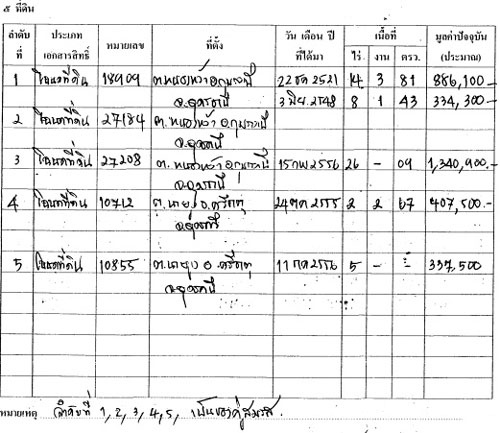 ๕ ที่ดิน
ลำดับที่ ประเภทเอกสารสิทธิ์ หมายเลข ที่ตั้ง วัน เดือน ปี ที่ได้มา เนื้อที่ ไร่ งาน ตรว. มูลค่าปัจจุบัน (ประมาณ)
1 โฉนดที่ดิน 18909 ต.หนองหว้า อ.กุมภวาปี 14 3 81 886,100-
จ.อุดรธานี 8 1 43 334,300-
2 โฉนดที่ดิน 27184 ต.หนองหว้า อ.กุมภวาปี
จ.อุดรธานี
3 โฉนดที่ดิน 27208 ต.หนองหว้า อ.กุมภวาปี 15 กพ 2556 26 - 09 1,340,900.-
จ.อุดรธานี
4 โฉนดที่ดิน 10712 ต.นายูง อ.ศรีธาตุ 24 ตค 2555 2 2 67 407,500.-
จ.อุดรธานี
5 โฉนดที่ดิน 10855 ต.นายูง อ.ศรีธาตุ 11 กค 2556 5 - - 337,500
จ.อุดรธานี
หมายเหตุ ลำดับที่ 1, 2, 3, 4, 5, เป็นของคู่สมรส.